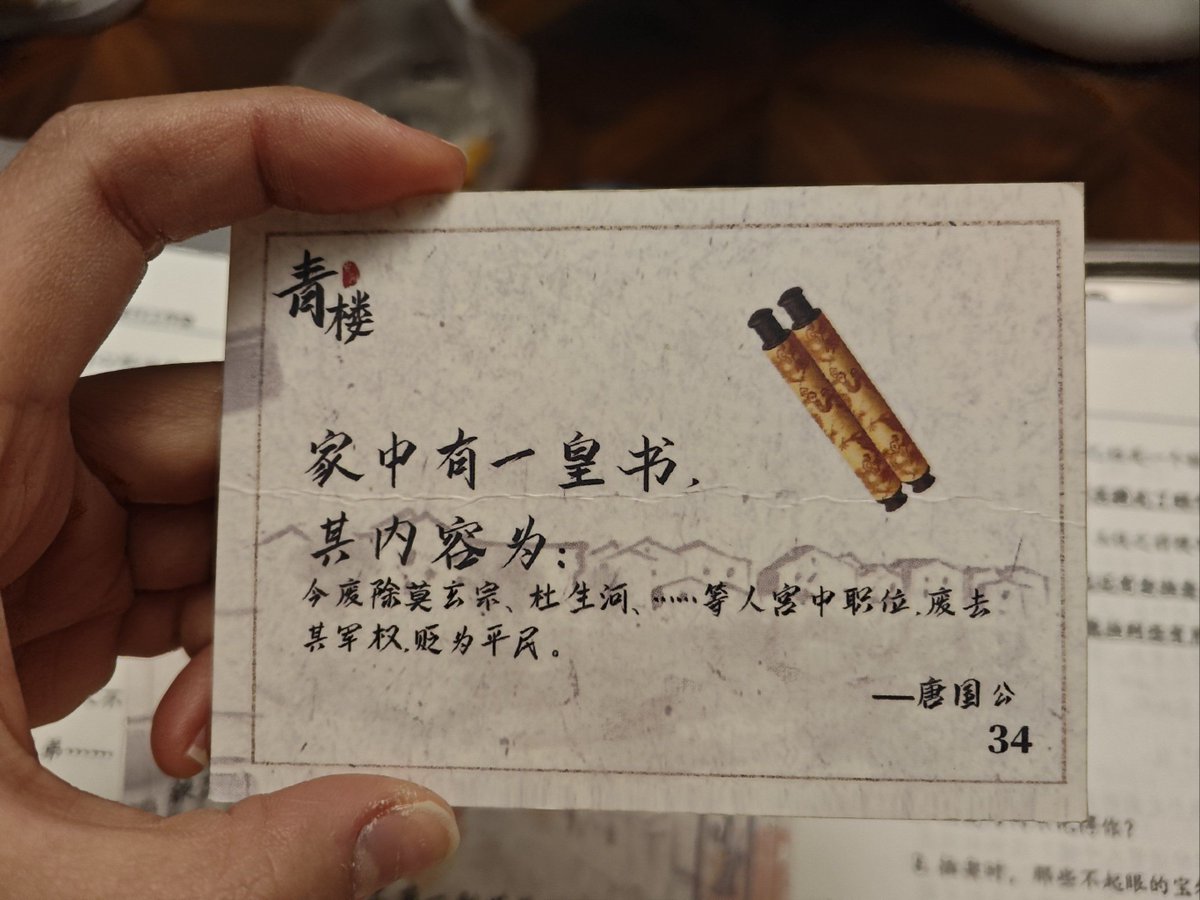 青楼
家中有一皇书,
其内容为:
今废除莫玄宗、杜生河、……等人宫中职位,废去
其军权,贬为平民。
—唐国公
34
弟……
得你?
8.拍卖时,那些不起眼的宝